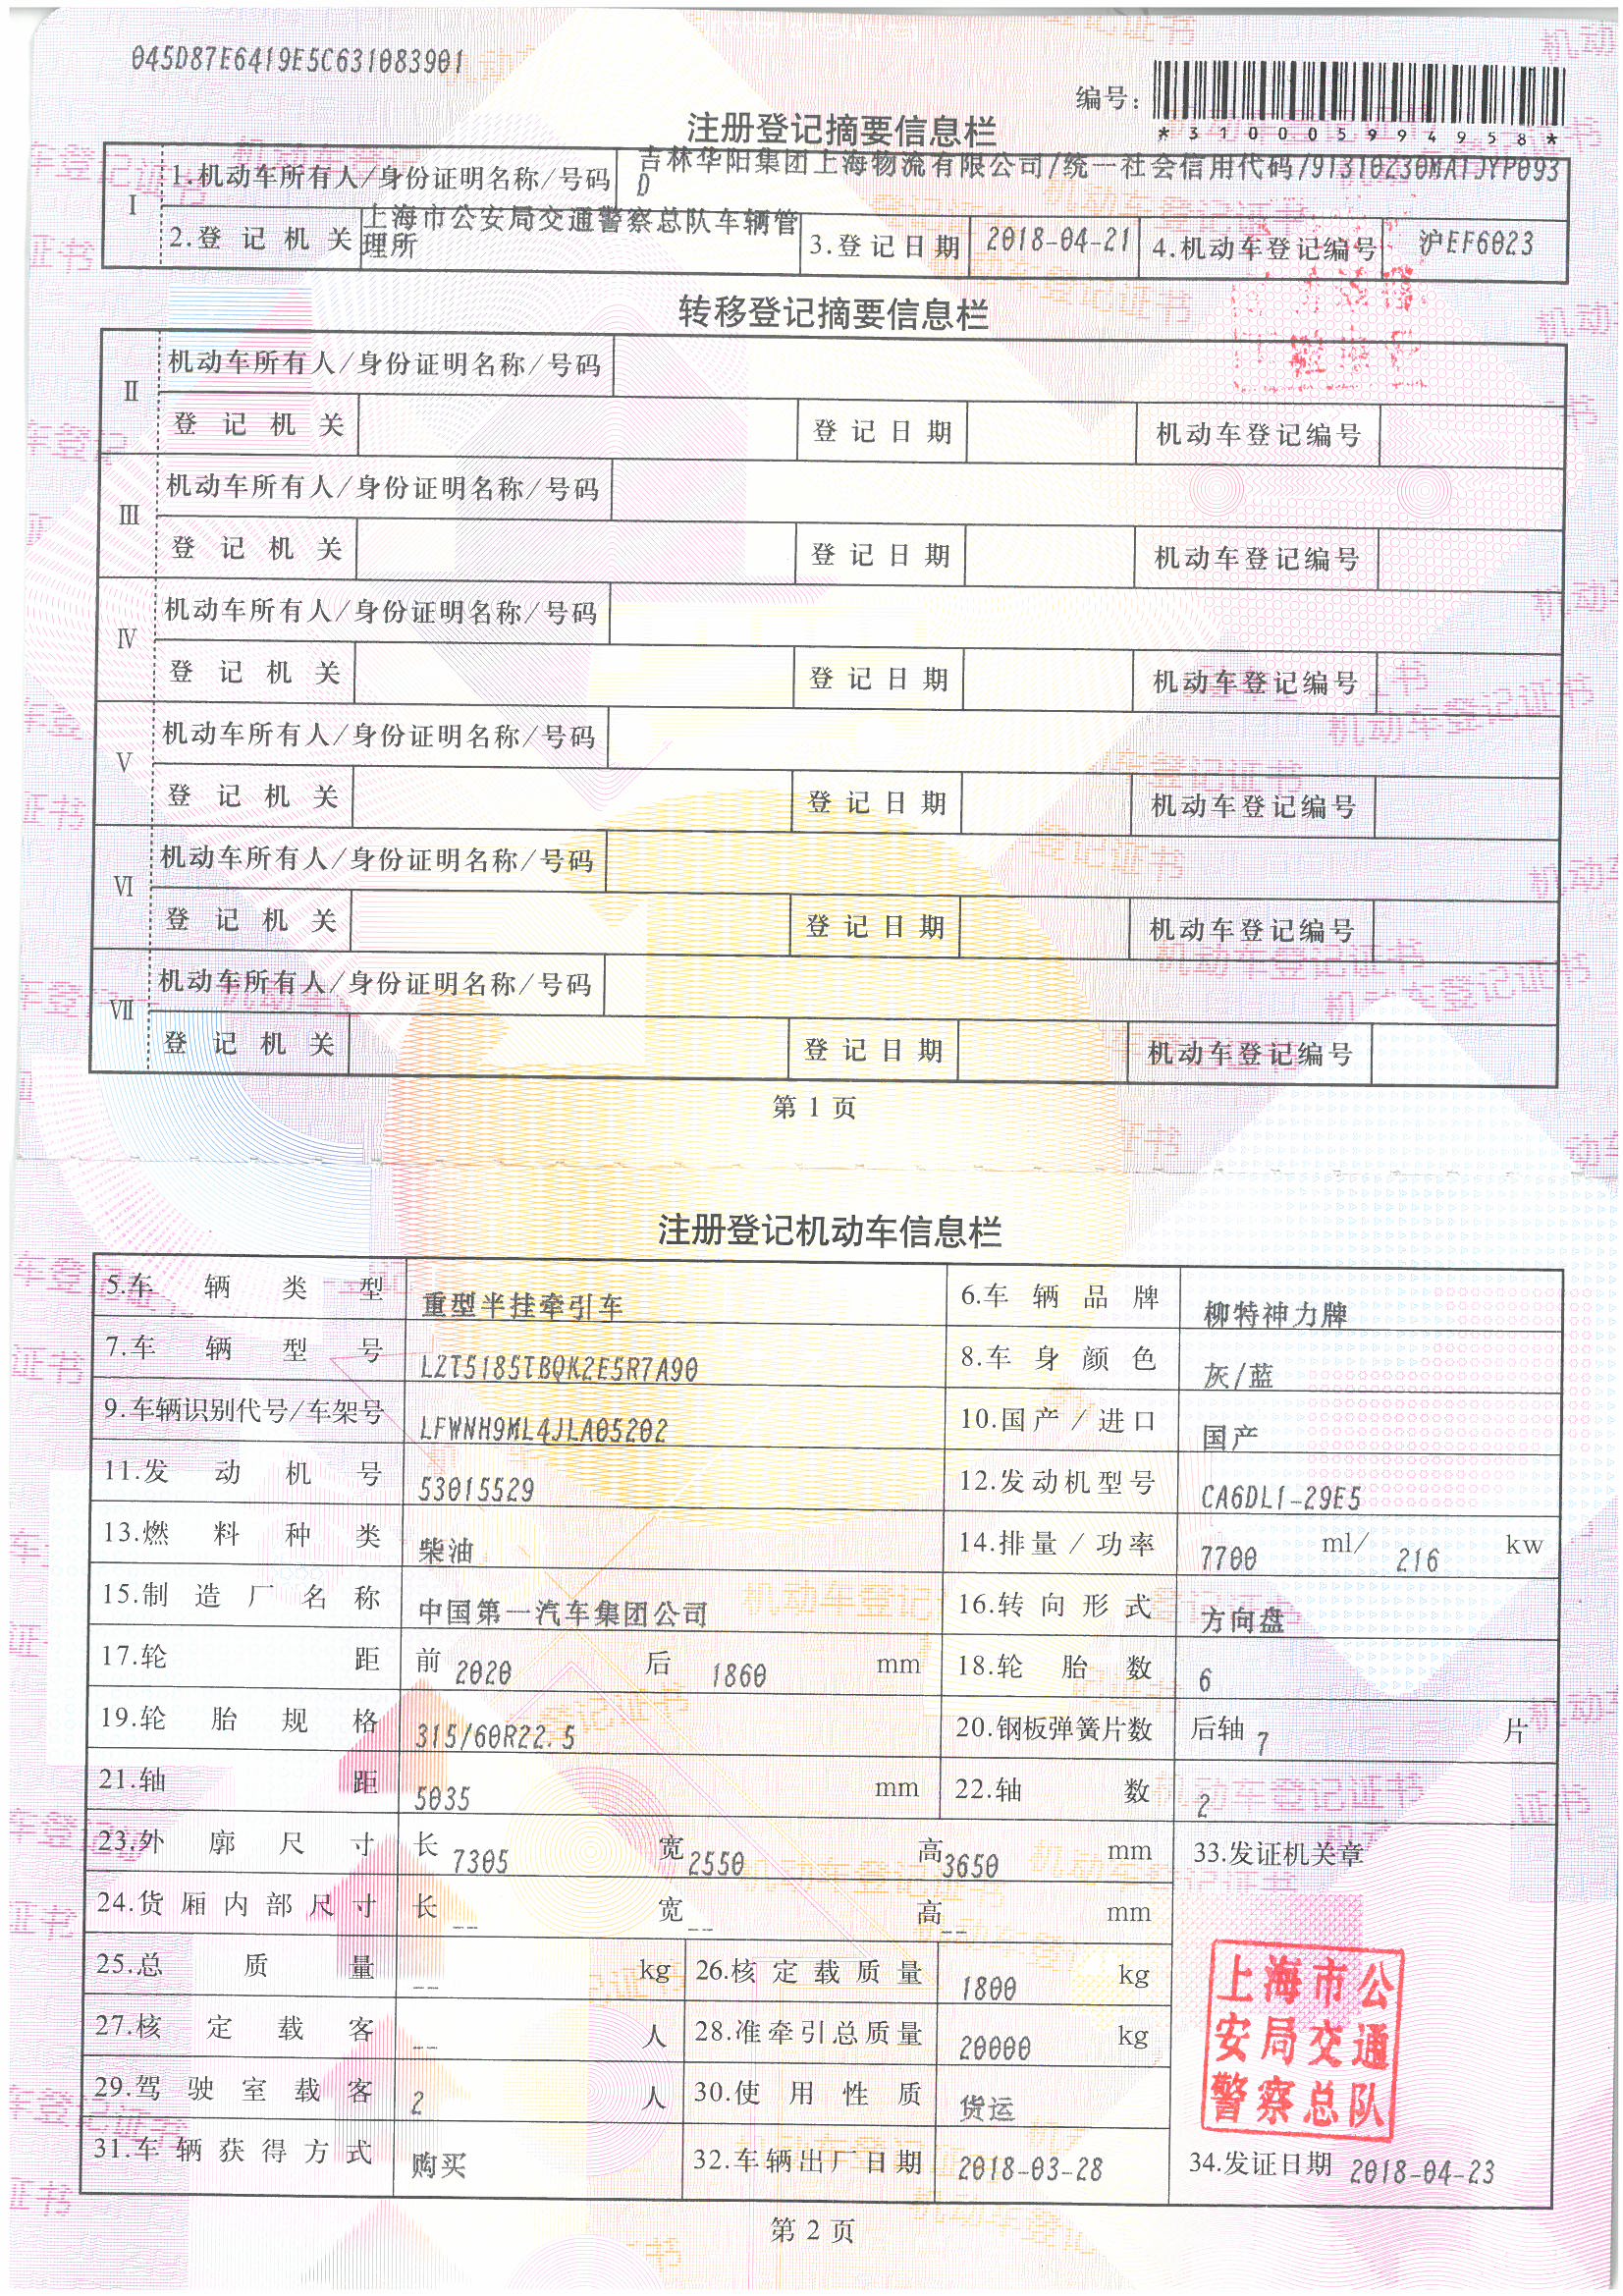 045D87E6419E5C631083901
编号：
*310005994958*
注册登记摘要信息栏
I
1.机动车所有人/身份证明名称/号码 吉林华阳集团上海物流有限公司/统一社会信用代码/91310230MA1JYP093
D
2.登记机关 上海市公安局交通警察总队车辆管
理所
3.登记日期 2018-04-21 4.机动车登记编号 沪EF6023
转移登记摘要信息栏
II
机动车所有人/身份证明名称/号码
登记机关 登记日期 机动车登记编号
III
机动车所有人/身份证明名称/号码
登记机关 登记日期 机动车登记编号
IV
机动车所有人/身份证明名称/号码
登记机关 登记日期 机动车登记编号
V
机动车所有人/身份证明名称/号码
登记机关 登记日期 机动车登记编号
VI
机动车所有人/身份证明名称/号码
登记机关 登记日期 机动车登记编号
VII
机动车所有人/身份证明名称/号码
登记机关 登记日期 机动车登记编号
第 1 页
注册登记机动车信息栏
5.车辆类型 重型半挂牵引车 6.车辆品牌 柳特神力牌
7.车辆型号 LZT5185TBQK2E5R7A90 8.车身颜色 灰/蓝
9.车辆识别代号/车架号 LFWNH9ML4JLA05202 10.国产/进口 国产
11.发动机号 53015529 12.发动机型号 CA6DL1-29E5
13.燃料种类 柴油 14.排量/功率 7700 ml/ 216 kw
15.制造厂名称 中国第一汽车集团公司 16.转向形式 方向盘
17.轮距 前 2020 后 1860 mm 18.轮胎数 6
19.轮胎规格 315/60R22.5 20.钢板弹簧片数 后轴 7 片
21.轴距 5035 mm 22.轴数 2
23.外廓尺寸 长 7305 宽 2550 高 3650 mm 33.发证机关章
24.货厢内部尺寸 长 -- 宽 -- 高 -- mm
25.总质量 -- kg 26.核定载质量 1800 kg
27.核定载客 -- 人 28.准牵引总质量 20000 kg
29.驾驶室载客 2 人 30.使用性质 货运
上海市公
安局交通
警察总队
31.车辆获得方式 购买 32.车辆出厂日期 2018-03-28 34.发证日期 2018-04-23
第 2 页